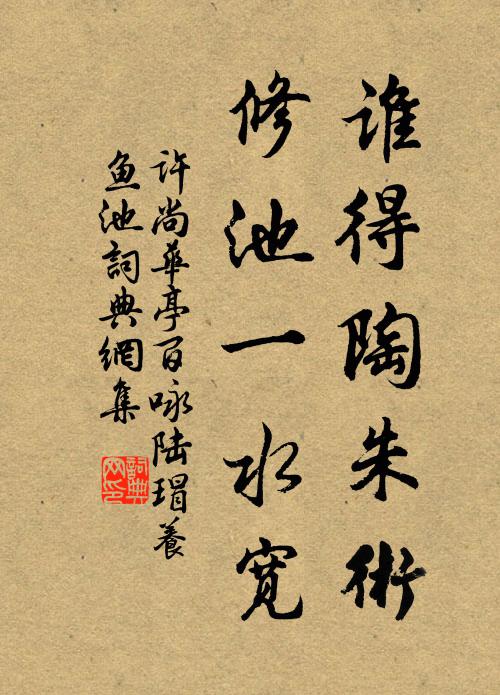 谁得陶朱術
修池一水寬
许尚華亭百咏陆瑁養
鱼池詞典網集
詞典网印